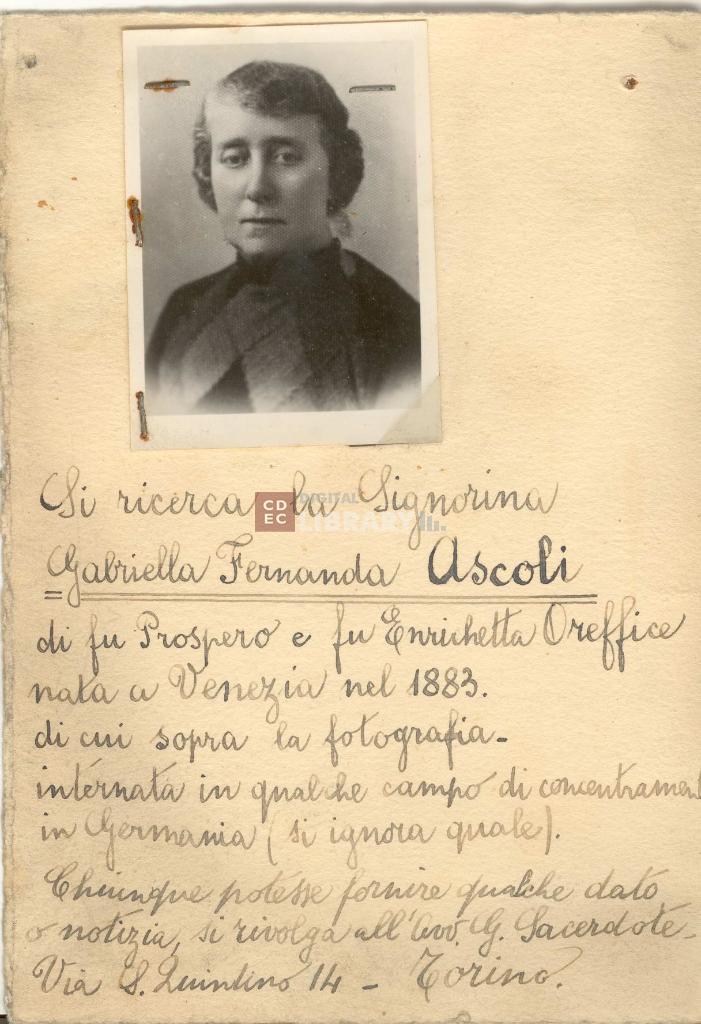 Si ricerca la Signorina
Gabriella Fernanda Ascoli
di fu Prospero e fu Enrichetta Oreffice
nata a Venezia nel 1883.
di cui sopra la fotografia -
internata in qualche campo di concentrament
in Germania (si ignora quale).
Chiunque potesse fornire qualche dato
o notizia, si rivolga all'Avv. G. Sacerdote -
Via S. Quintino 14 - Torino.
CDEC DIGITAL LIBRARY